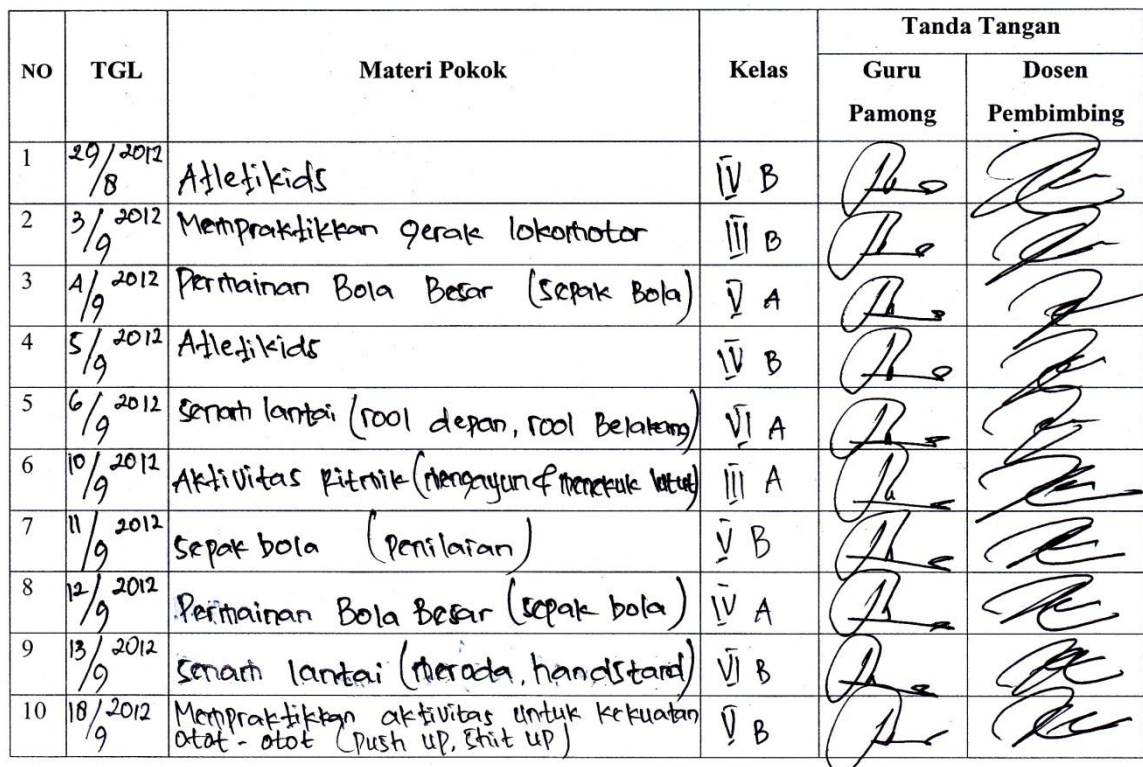 NO TGL Materi Pokok Kelas Tanda Tangan
Guru Pamong Dosen Pembimbing
1 29/8 2012 Atletikids IV B
2 3/9 2012 Mempraktikkan gerak lokomotor III B
3 4/9 2012 Permainan Bola Besar (sepak Bola) V A
4 5/9 2012 Atletikids IV B
5 6/9 2012 senam lantai (rool depan, rool Belakang) VI A
6 10/9 2012 Aktivitas Ritmik (mengayun & menekuk lutut) III A
7 11/9 2012 sepak bola (penilaian) V B
8 12/9 2012 Permainan Bola Besar (sepak bola) IV A
9 13/9 2012 senam lantai (meroda, handstand) VI B
10 18/9 2012 Mempraktikkan aktivitas untuk kekuatan
otot-otot (push up, shit up) V B